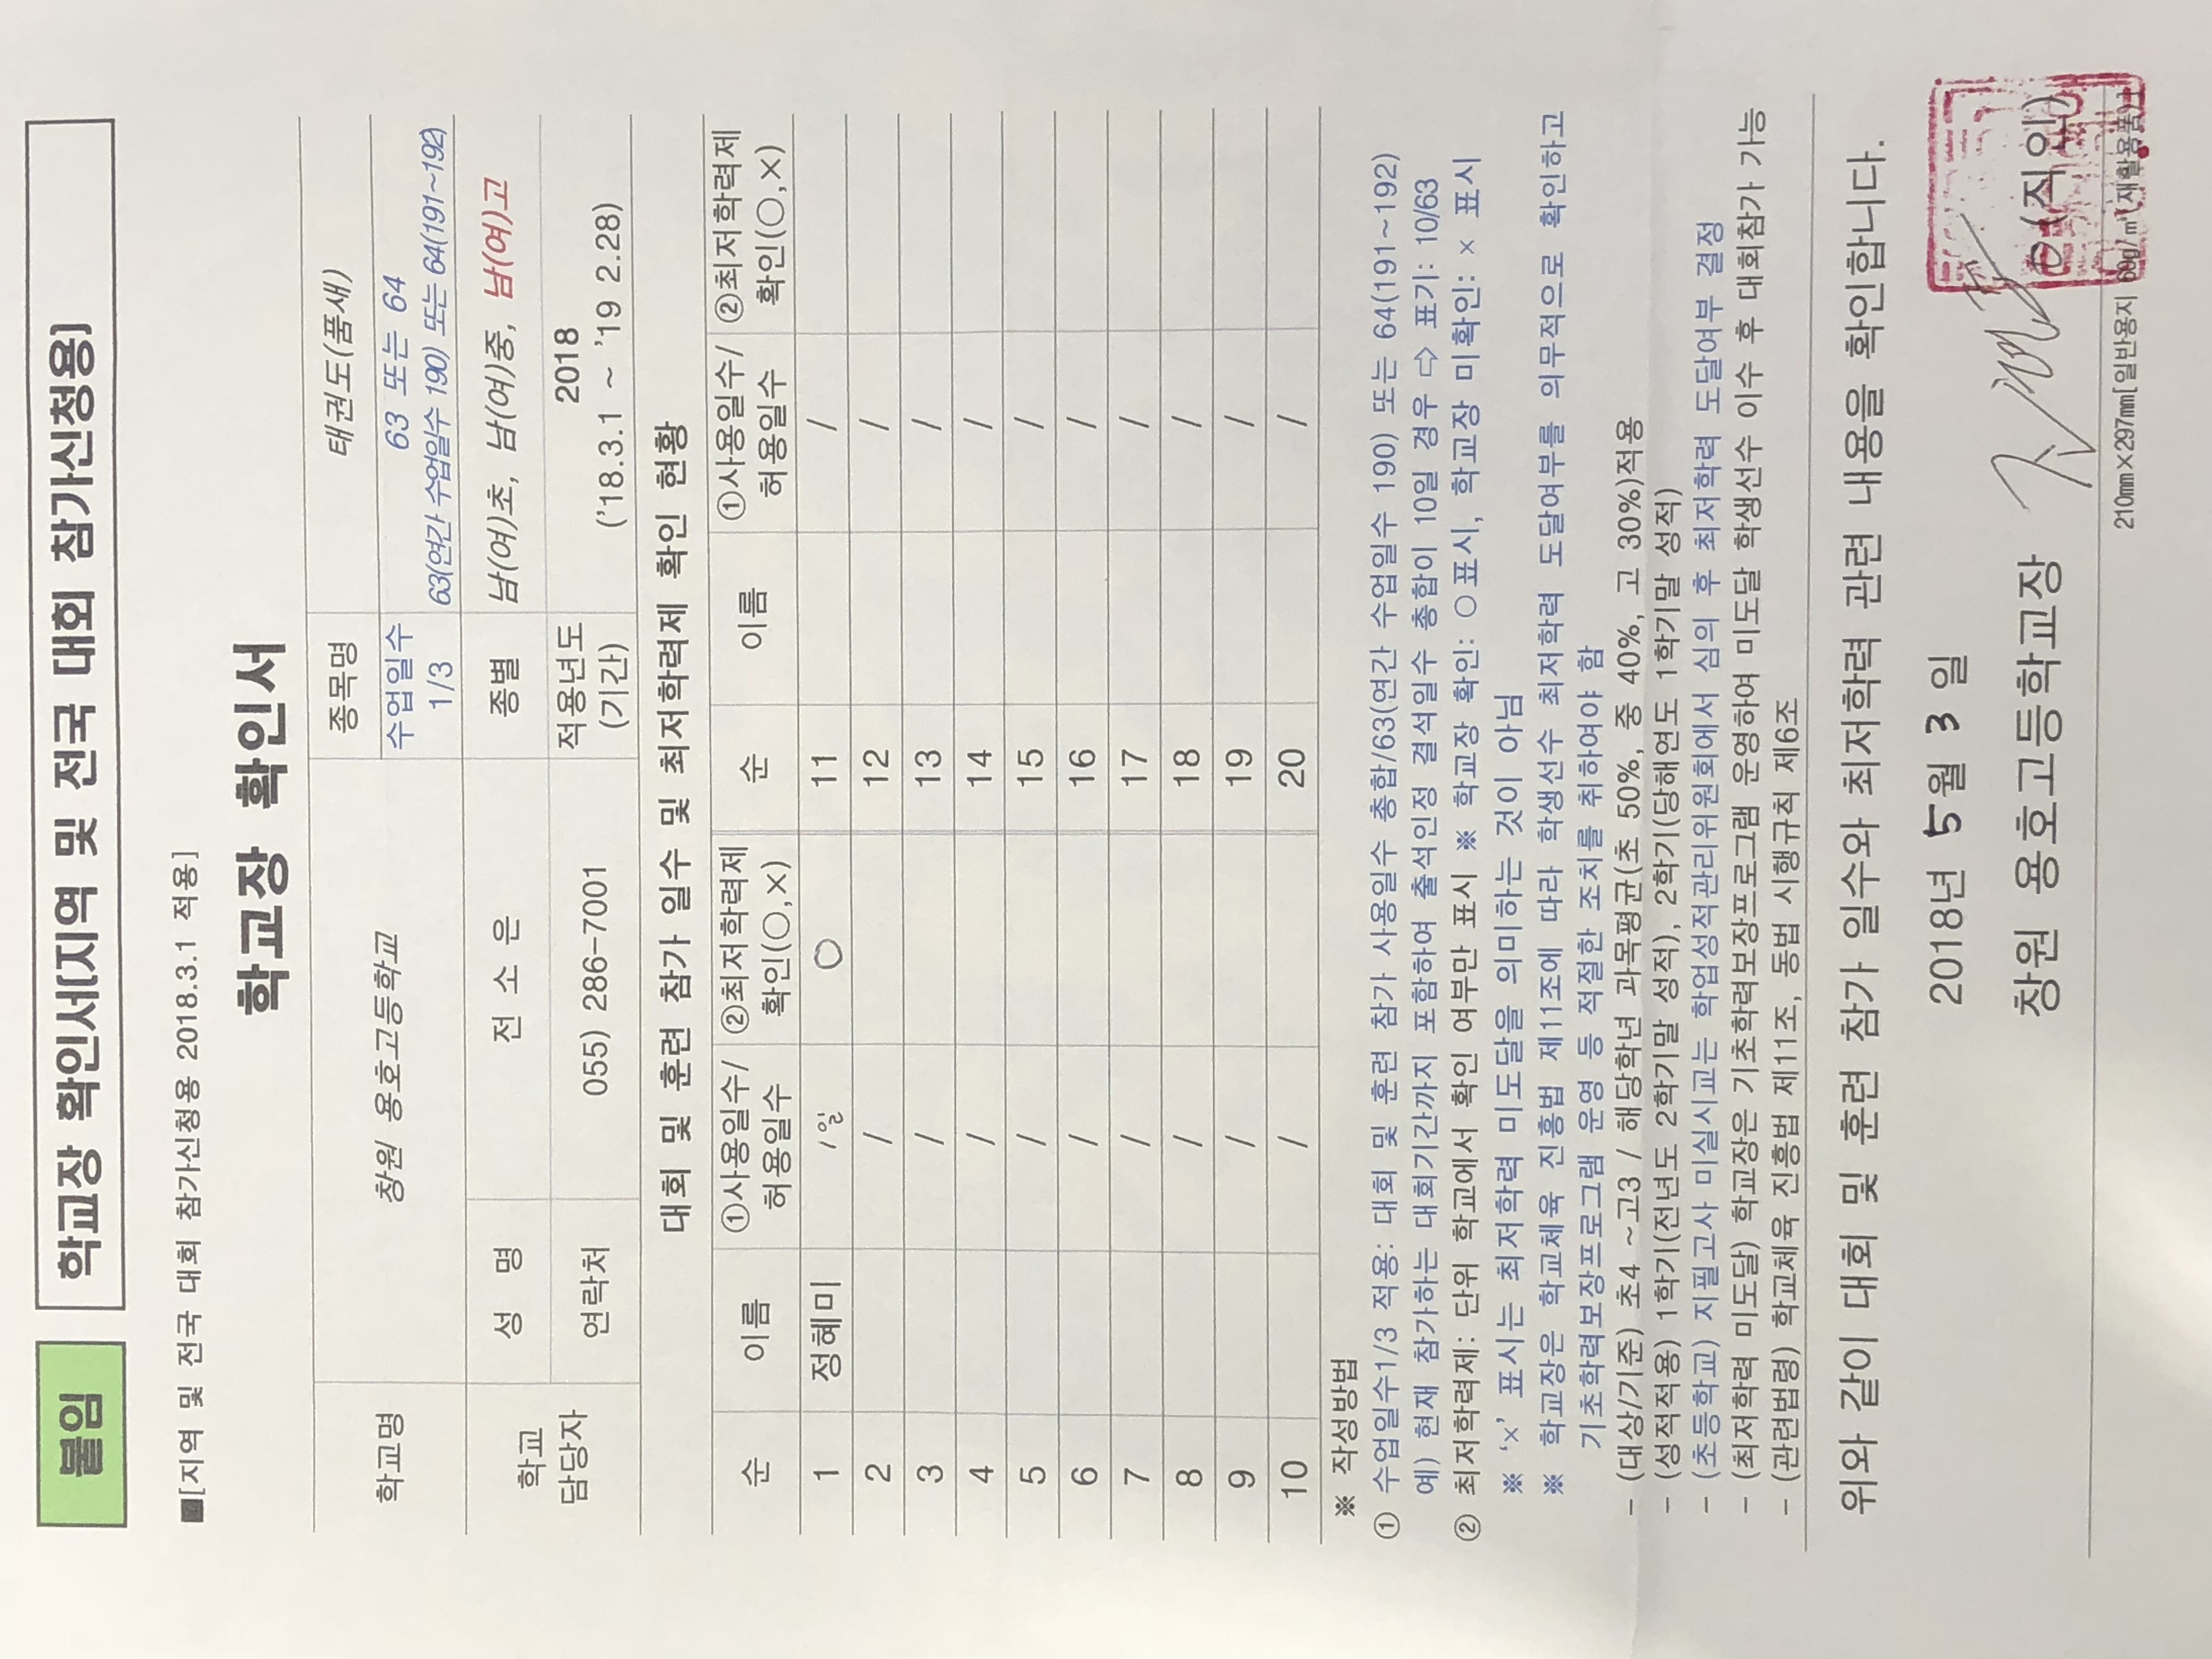 붙임
학교장 확인서(지역 및 전국 대회 참가신청용)
■[지역 및 전국 대회 참가신청용 2018.3.1 적용]
학교장 확인서
학교명 창원 용호고등학교 종목명 태권도(품새)
수업일수 1/3 63 또는 64
63(연간 수업일수 190) 또는 64(191~192)
학교 담당자 성 명 전 소 은 종별 남(여)초, 남(여)중, 남(여)고
연락처 055) 286-7001 적용년도 (기간) 2018
('18.3.1 ~ '19 2.28)
대회 및 훈련 참가 일수 및 최저학력제 확인 현황
순 이름 ①사용일수/ 허용일수 ②최저학력제 확인(○,×) 순 이름 ①사용일수/ 허용일수 ②최저학력제 확인(○,×)
1 정혜미 / 일 ○ 11 /
2 / 12 /
3 / 13 /
4 / 14 /
5 / 15 /
6 / 16 /
7 / 17 /
8 / 18 /
9 / 19 /
10 / 20 /
※ 작성방법
① 수업일수1/3 적용: 대회 및 훈련 참가 사용일수 총합/63(연간 수업일수 190) 또는 64(191~192)
예) 현재 참가하는 대회기간까지 포함하여 출석인정 결석일수 총합이 10일 경우 ⇨ 표기: 10/63
② 최저학력제: 단위 학교에서 확인 여부만 표시 ※ 학교장 확인: ○표시, 학교장 미확인: × 표시
※ '×' 표시는 최저학력 미도달을 의미하는 것이 아님
※ 학교장은 학교체육 진흥법 제11조에 따라 학생선수 최저학력 도달여부를 의무적으로 확인하고
기초학력보장프로그램 운영 등 적절한 조치를 취하여야 함
- (대상/기준) 초4 ~고3 / 해당학년 과목평균(초 50%, 중 40%, 고 30%)적용
- (성적적용) 1학기(전년도 2학기말 성적), 2학기(당해연도 1학기말 성적)
- (초등학교) 지필고사 미실시교는 학업성적관리위원회에서 심의 후 최저학력 도달여부 결정
- (최저학력 미도달) 학교장은 기초학력보장프로그램 운영하여 미도달 학생선수 이수 후 대회참가 가능
- (관련법령) 학교체육 진흥법 제11조, 동법 시행규칙 제6조
위와 같이 대회 및 훈련 참가 일수와 최저학력 관련 내용을 확인합니다.
2018년 5월 3일
창원 용호고등학교장 (직인)
210㎜×297㎜[일반용지 60g/㎡(재활용품)]